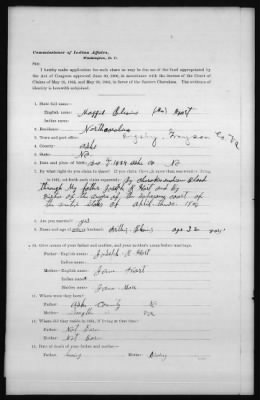 Commissioner of Indian Affairs,
Washington, D. C.
SIR:
I hereby make application for such share as may be due me of the fund appropriated by
the Act of Congress approved June 30, 1906, in accordance with the decrees of the Court of
Claims of May 18, 1905, and May 28, 1906, in favor of the Eastern Cherokees. The evidence of
identity is herewith subjoined.
1. State full name—
English name: Hart
Indian name:
2. Residence: Northcarolina
3. Town and post office: Grayson Co. Va
4. County: Ashe
5. State: NC
6. Date and place of birth: 1884 Ashe Co NC
7. By what right do you claim to share? If you claim through more than one relative living in
1851, set forth each claim separately: By cherokee indian Blood
through My father Joseph R Hart and By
of the of the supreme court of
the united States of april 1906
8. Are you married? yes
9. Name and age of wife or husband: age 32 years
10. Give names of your father and mother, and your mother's name before marriage.
Father—English name: Joseph R Hart
Indian name:
Mother—English name: Jane Hart
Indian name:
Maiden name: Jane
11. Where were they born?
Father: Ashe County NC
Mother: Smyth " va
12. Where did they reside in 1851, if living at that time?
Father: Not Born
Mother: Not Born
13. Date of death of your father and mother—
Father: Living Mother: Living